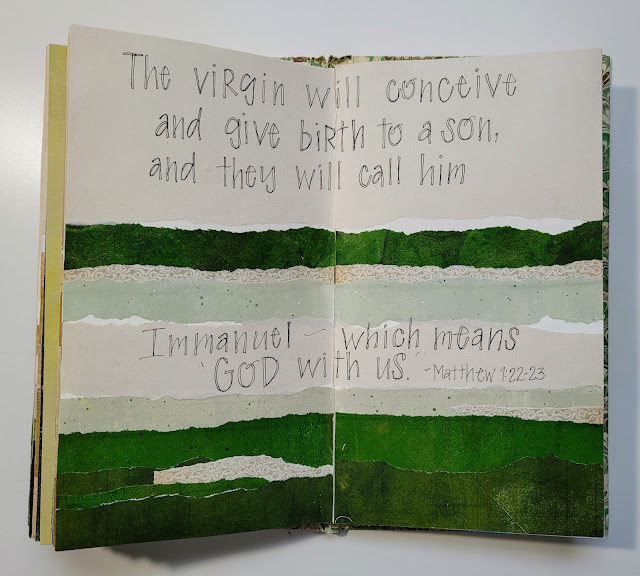 The virgin will conceive
and give birth to a son,
and they will call him
Immanuel - which means
'GOD with us.' ~Matthew 1:22-23